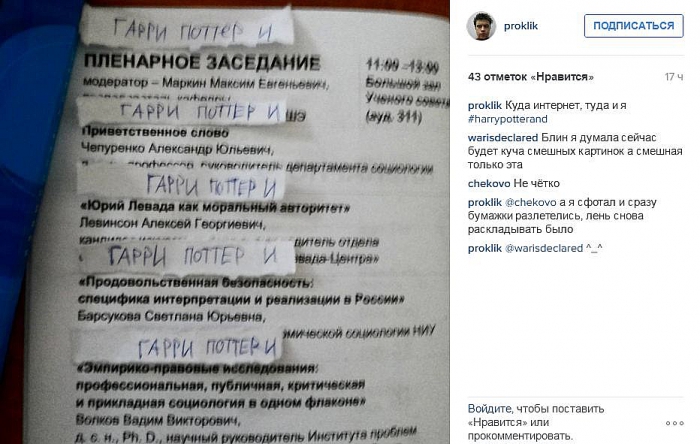 ГАРРИ ПОТТЕР И
ПЛЕНАРНОЕ ЗАСЕДАНИЕ
11:00 –13:00
модератор – Маркин Максим Евгеньевич,
Большой зал
Ученого совета
ГАРРИ ПОТТЕР И
ШЭ
(ауд. 311)
Приветственное слово
Чепуренко Александр Юльевич,
профессор, руководитель департамента социологии
ГАРРИ ПОТТЕР И
«Юрий Левада как моральный авторитет»
Левинсон Алексей Георгиевич,
дитель отдела
ГАРРИ ПОТТЕР И
вада-Центра»
«Продовольственная безопасность:
специфика интерпретации и реализации в России»
Барсукова Светлана Юрьевна,
мической социологии НИУ
ГАРРИ ПОТТЕР И
«Эмпирико-правовые исследования:
профессиональная, публичная, критическая
и прикладная социология в одном флаконе»
Волков Вадим Викторович,
д. с. н., Ph. D., научный руководитель Института проблем
proklik
ПОДПИСАТЬСЯ
43 отметок «Нравится»
17 ч
proklik Куда интернет, туда и я
#harrypotterand
warisdeclared Блин я думала сейчас
будет куча смешных картинок а смешная
только эта
chekovo Не чётко
proklik @chekovo а я сфотал и сразу
бумажки разлетелись, лень снова
раскладывать было
proklik @warisdeclared ^_^
Войдите, чтобы поставить
«Нравится» или
прокомментировать.